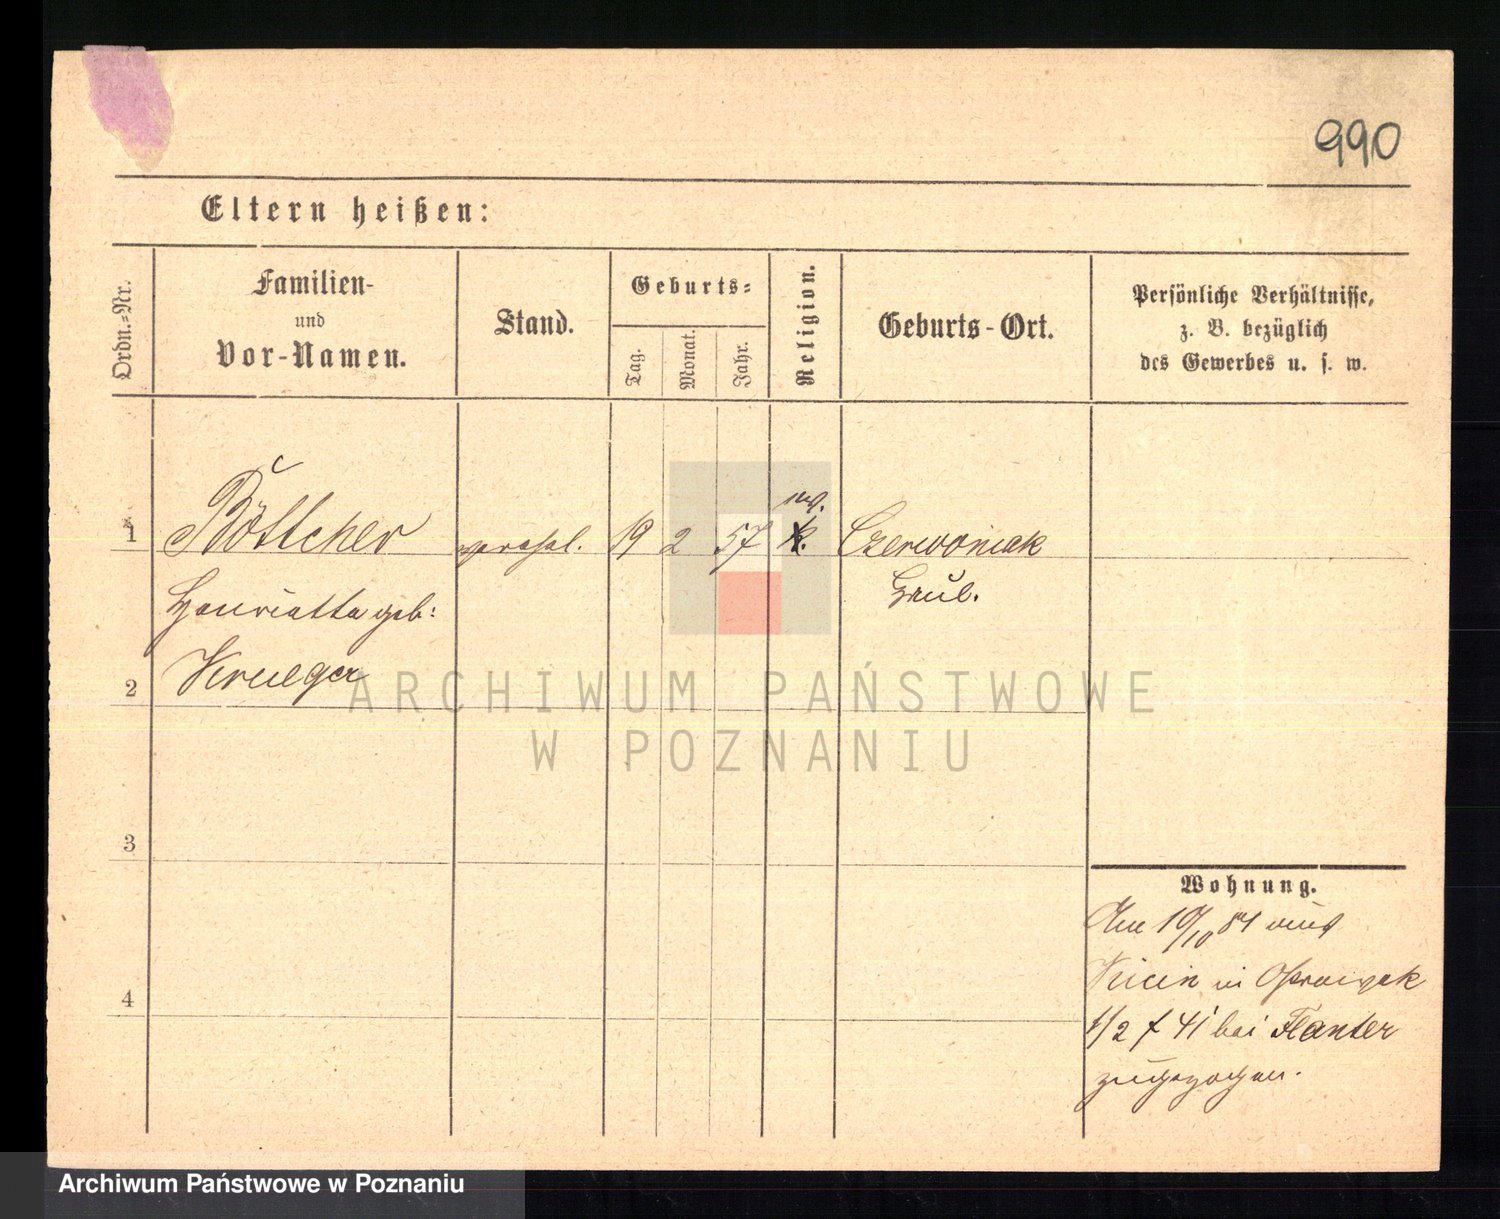 990
Eltern heißen:
Ordn.-Nr.
Familien-
und
Vor-Namen.
Stand.
Geburts-
Tag.
Monat.
Jahr.
Religion.
Geburts-Ort.
Persönliche Verhältnisse,
z. B. bezüglich
des Gewerbes u. s. w.
1 Böttcher verehel. 19 2 57 ev. k. Czerwonak
Henriette geb:
2 Krueger
3
4
Wohnung.
Am 19/10 84 aus
Kicin in
1/2 f 41 bei Flanter
zugezogen.
ARCHIWUM PAŃSTWOWE
W POZNANIU
Archiwum Państwowe w Poznaniu